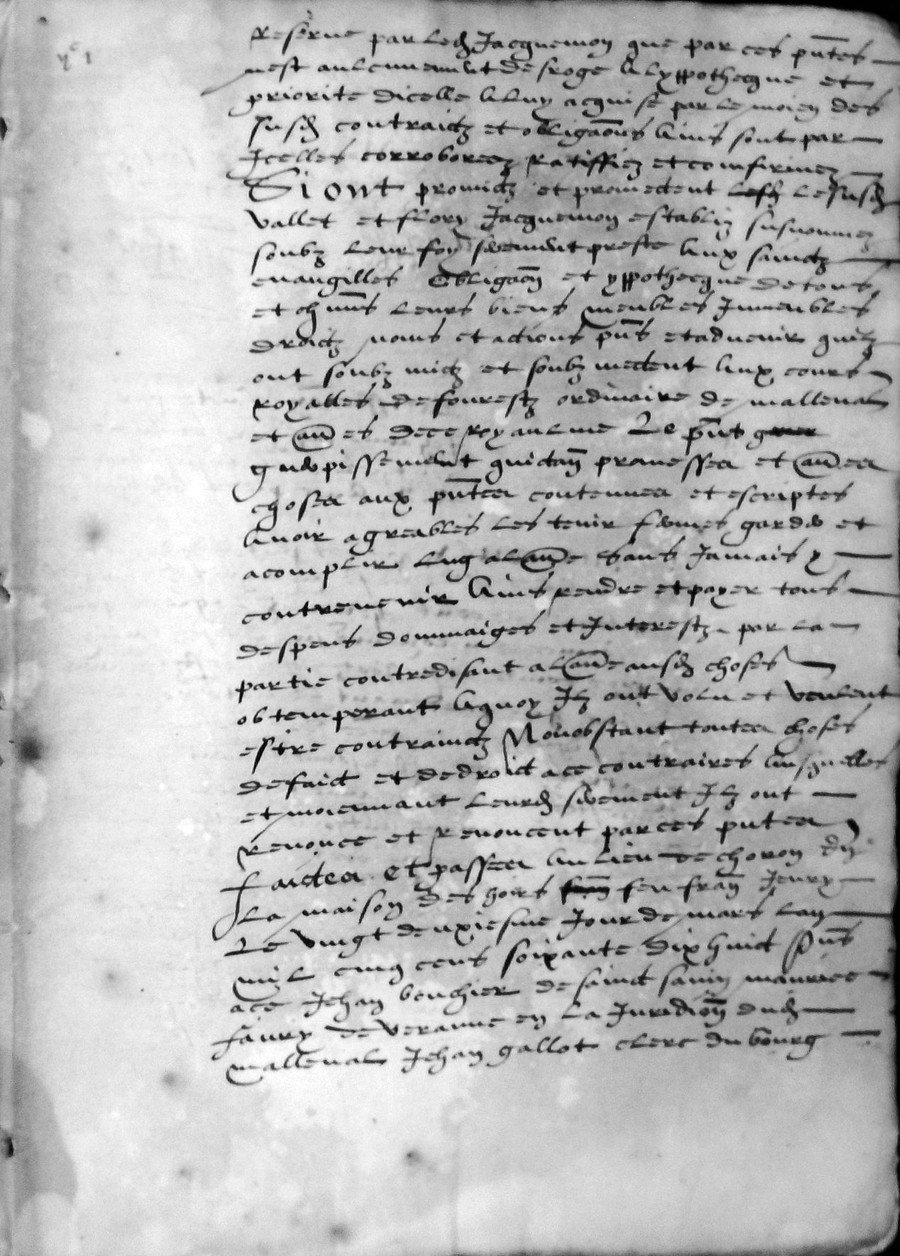 reserve par led Jacquemon que par ces pntes
nest aulcunement desroge a lyppothecque et
priorite dicelle a luy acquise par le moien des
susd contraictz et obligaons ains sont par
Icelles corroborez ratiffiez et comfirmez
Si ont promictz et promectent lesd lesusd
Vallet et flory Jacquemon establiz susnommez
soubz leur foy serement preste aux sainctz
evangilles obligaon et ypothecque de tous
et chuns leurs biens meubles Immeubles
droictz noms et actions pns et advenir quilz
ont soubz mictz et soubz mectent aux cours
royalles de fourestz ordinaire de mallevал
et aues de ce royaulme Le pnt
guerpissement quictan promesses et aues
choses aux pntes contenues et escriptes
avoir agreables les tenir fermes garder et
acomplir lug a laue sans Jamais y
contrevenir ains rendre et payer tous
despens dommaiges et Interestz par la
partie contredisant a laue ausd choses
obtemperant a quoy Ilz ont volu et veulent
estre contrainctz Nonobstant toutes choses
de faict et de droict a ce contraires ausquelles
et moiennant leurd serement Ilz ont
renonce et renoncent par ces pntes
faictes et passees au lieu de choron
la maison des hoirs feu fran Jeury
Le vingt deuxiesme Jour de mars lan
mil cinq cens soixante dix huict Pns
a ce Jehan bouchier de sainct savin maurice
faury de veranne en la Juridion dud
malleval Jehan gallot clerc du bourg